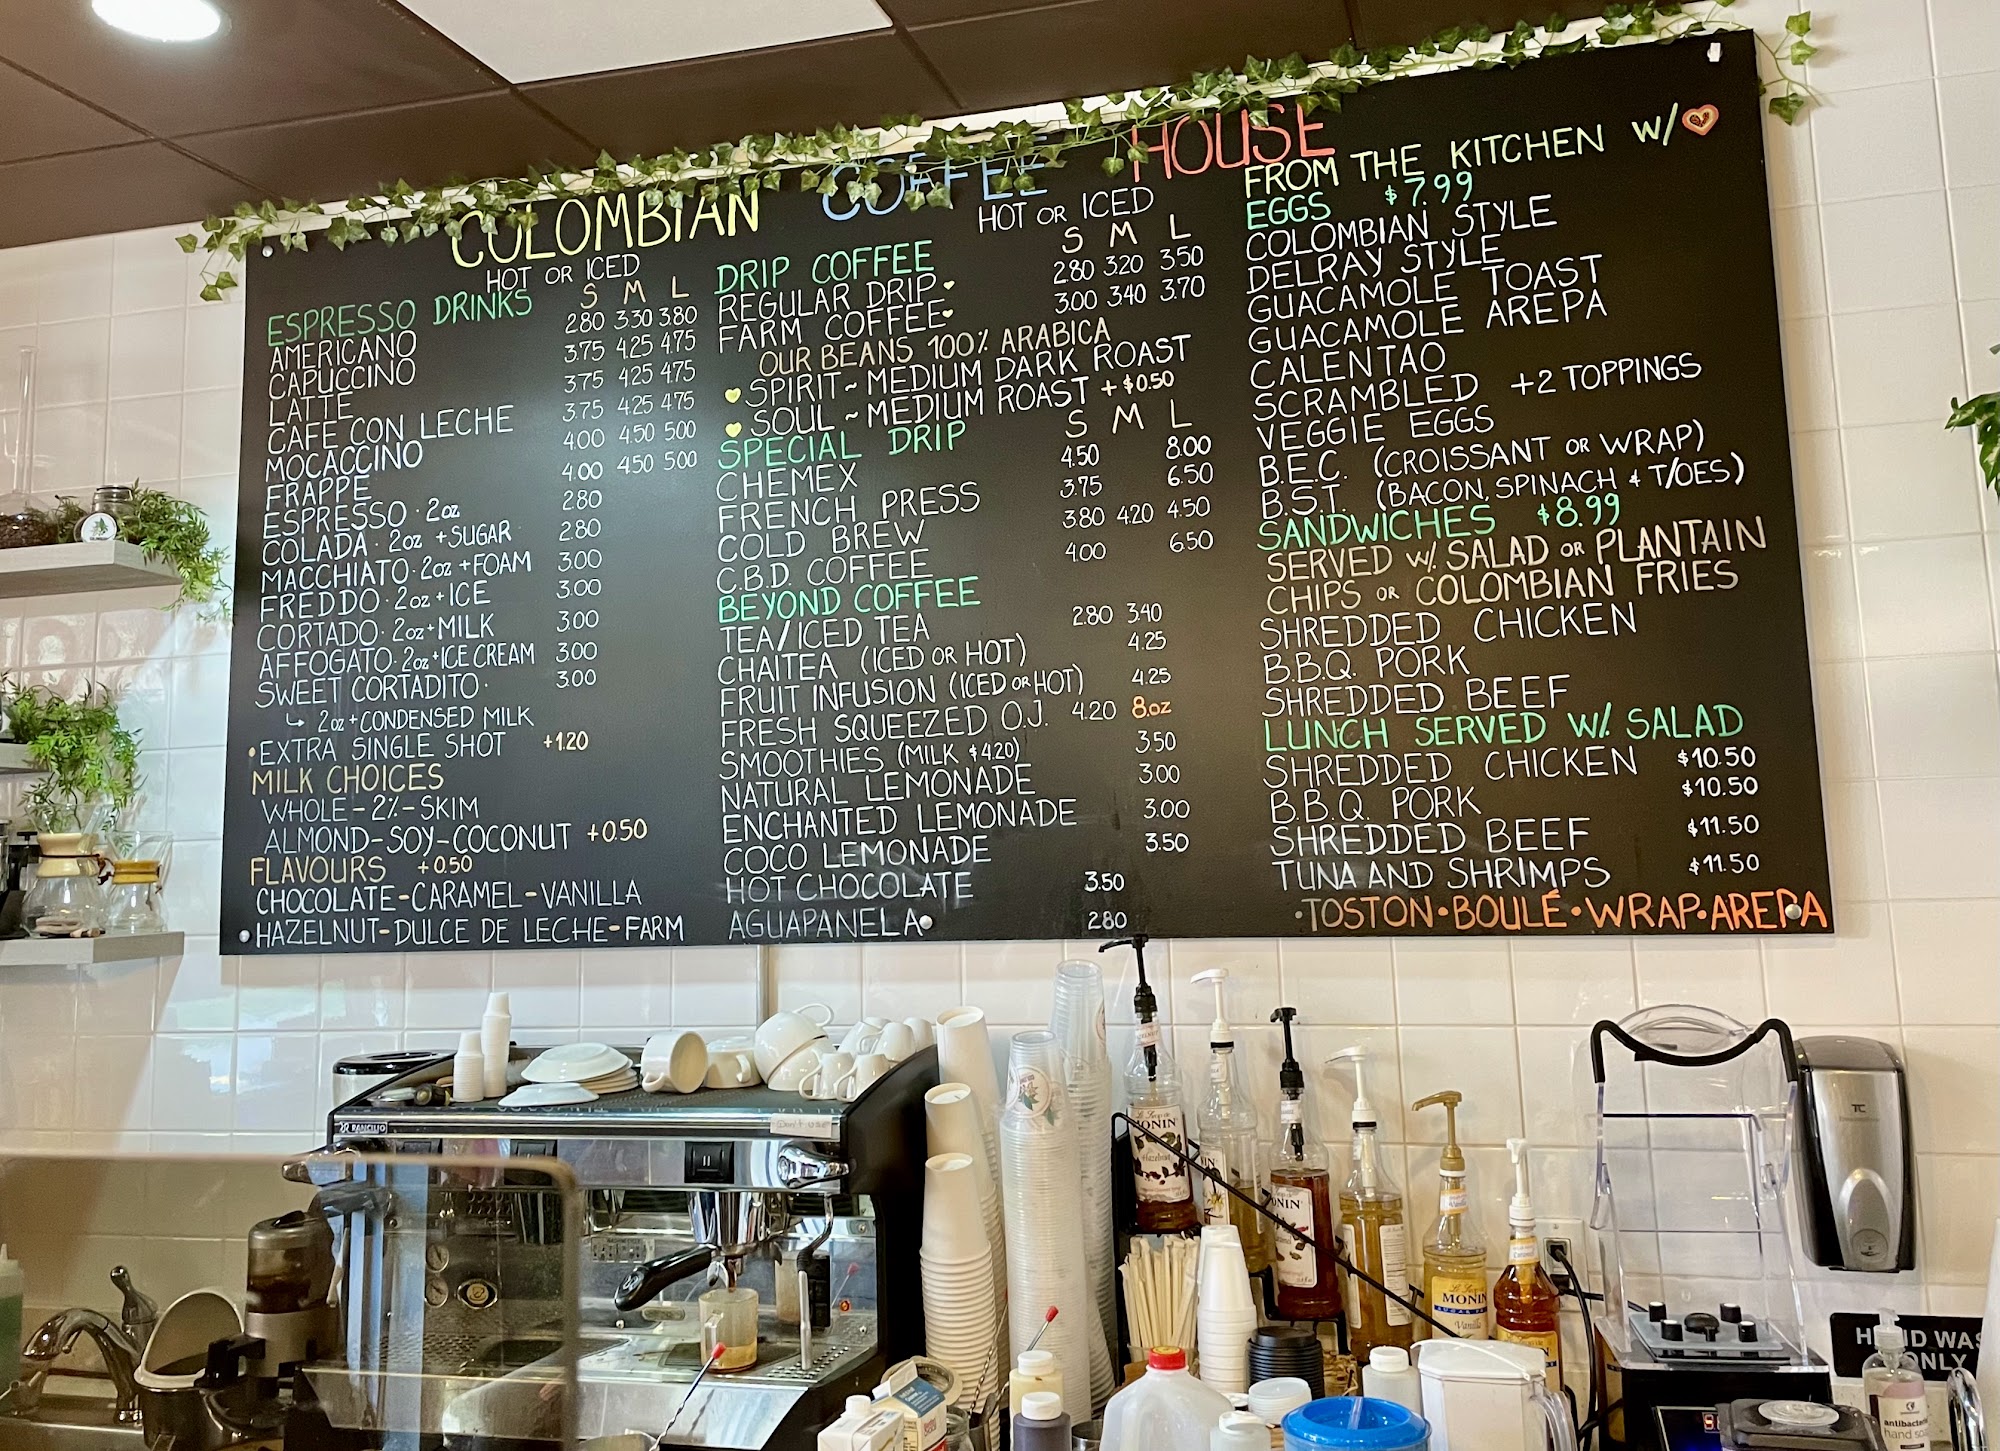 COLOMBIAN COFFEE HOUSE
HOT OR ICED
ESPRESSO DRINKS S M L
AMERICANO 2.80 3.30 3.80
CAPUCCINO 3.75 4.25 4.75
LATTE 3.75 4.25 4.75
CAFE CON LECHE 3.75 4.25 4.75
MOCACCINO 4.00 4.50 5.00
FRAPPE 4.00 4.50 5.00
ESPRESSO · 2oz 2.80
COLADA · 2oz + SUGAR 2.80
MACCHIATO · 2oz + FOAM 3.00
FREDDO · 2oz + ICE 3.00
CORTADO · 2oz + MILK 3.00
AFFOGATO · 2oz + ICE CREAM 3.00
SWEET CORTADITO · 3.00
↳ 2oz + CONDENSED MILK
• EXTRA SINGLE SHOT +1.20
MILK CHOICES
WHOLE - 2% - SKIM
ALMOND - SOY - COCONUT +0.50
FLAVOURS +0.50
CHOCOLATE - CARAMEL - VANILLA
HAZELNUT - DULCE DE LECHE - FARM
HOT OR ICED
DRIP COFFEE S M L
REGULAR DRIP 2.80 3.20 3.50
FARM COFFEE 3.00 3.40 3.70
OUR BEANS 100% ARABICA
SPIRIT ~ MEDIUM DARK ROAST
SOUL ~ MEDIUM ROAST + $0.50
SPECIAL DRIP S M L
CHEMEX 4.50 8.00
FRENCH PRESS 3.75 6.50
COLD BREW 3.80 4.20 4.50
C.B.D. COFFEE 4.00 6.50
BEYOND COFFEE
TEA/ICED TEA 2.80 3.40
CHAITEA (ICED OR HOT) 4.25
FRUIT INFUSION (ICED OR HOT) 4.25
FRESH SQUEEZED O.J. 4.20 8oz
SMOOTHIES (MILK $4.20) 3.50
NATURAL LEMONADE 3.00
ENCHANTED LEMONADE 3.00
COCO LEMONADE 3.50
HOT CHOCOLATE 3.50
AGUAPANELA 2.80
FROM THE KITCHEN W/
EGGS $7.99
COLOMBIAN STYLE
DELRAY STYLE
GUACAMOLE TOAST
GUACAMOLE AREPA
CALENTAO
SCRAMBLED +2 TOPPINGS
VEGGIE EGGS
B.E.C. (CROISSANT OR WRAP)
B.S.T. (BACON, SPINACH & T/OES)
SANDWICHES $8.99
SERVED W/. SALAD OR PLANTAIN
CHIPS OR COLOMBIAN FRIES
SHREDDED CHICKEN
B.B.Q. PORK
SHREDDED BEEF
LUNCH SERVED W/. SALAD
SHREDDED CHICKEN $10.50
B.B.Q. PORK $10.50
SHREDDED BEEF $11.50
TUNA AND SHRIMPS $11.50
· TOSTON · BOULÉ · WRAP · AREPA
RANCILIO
MONIN
Hazelnut
MONIN
MONIN
Vanilla
TC
HAND WAS
ONLY
antibacte
hand so